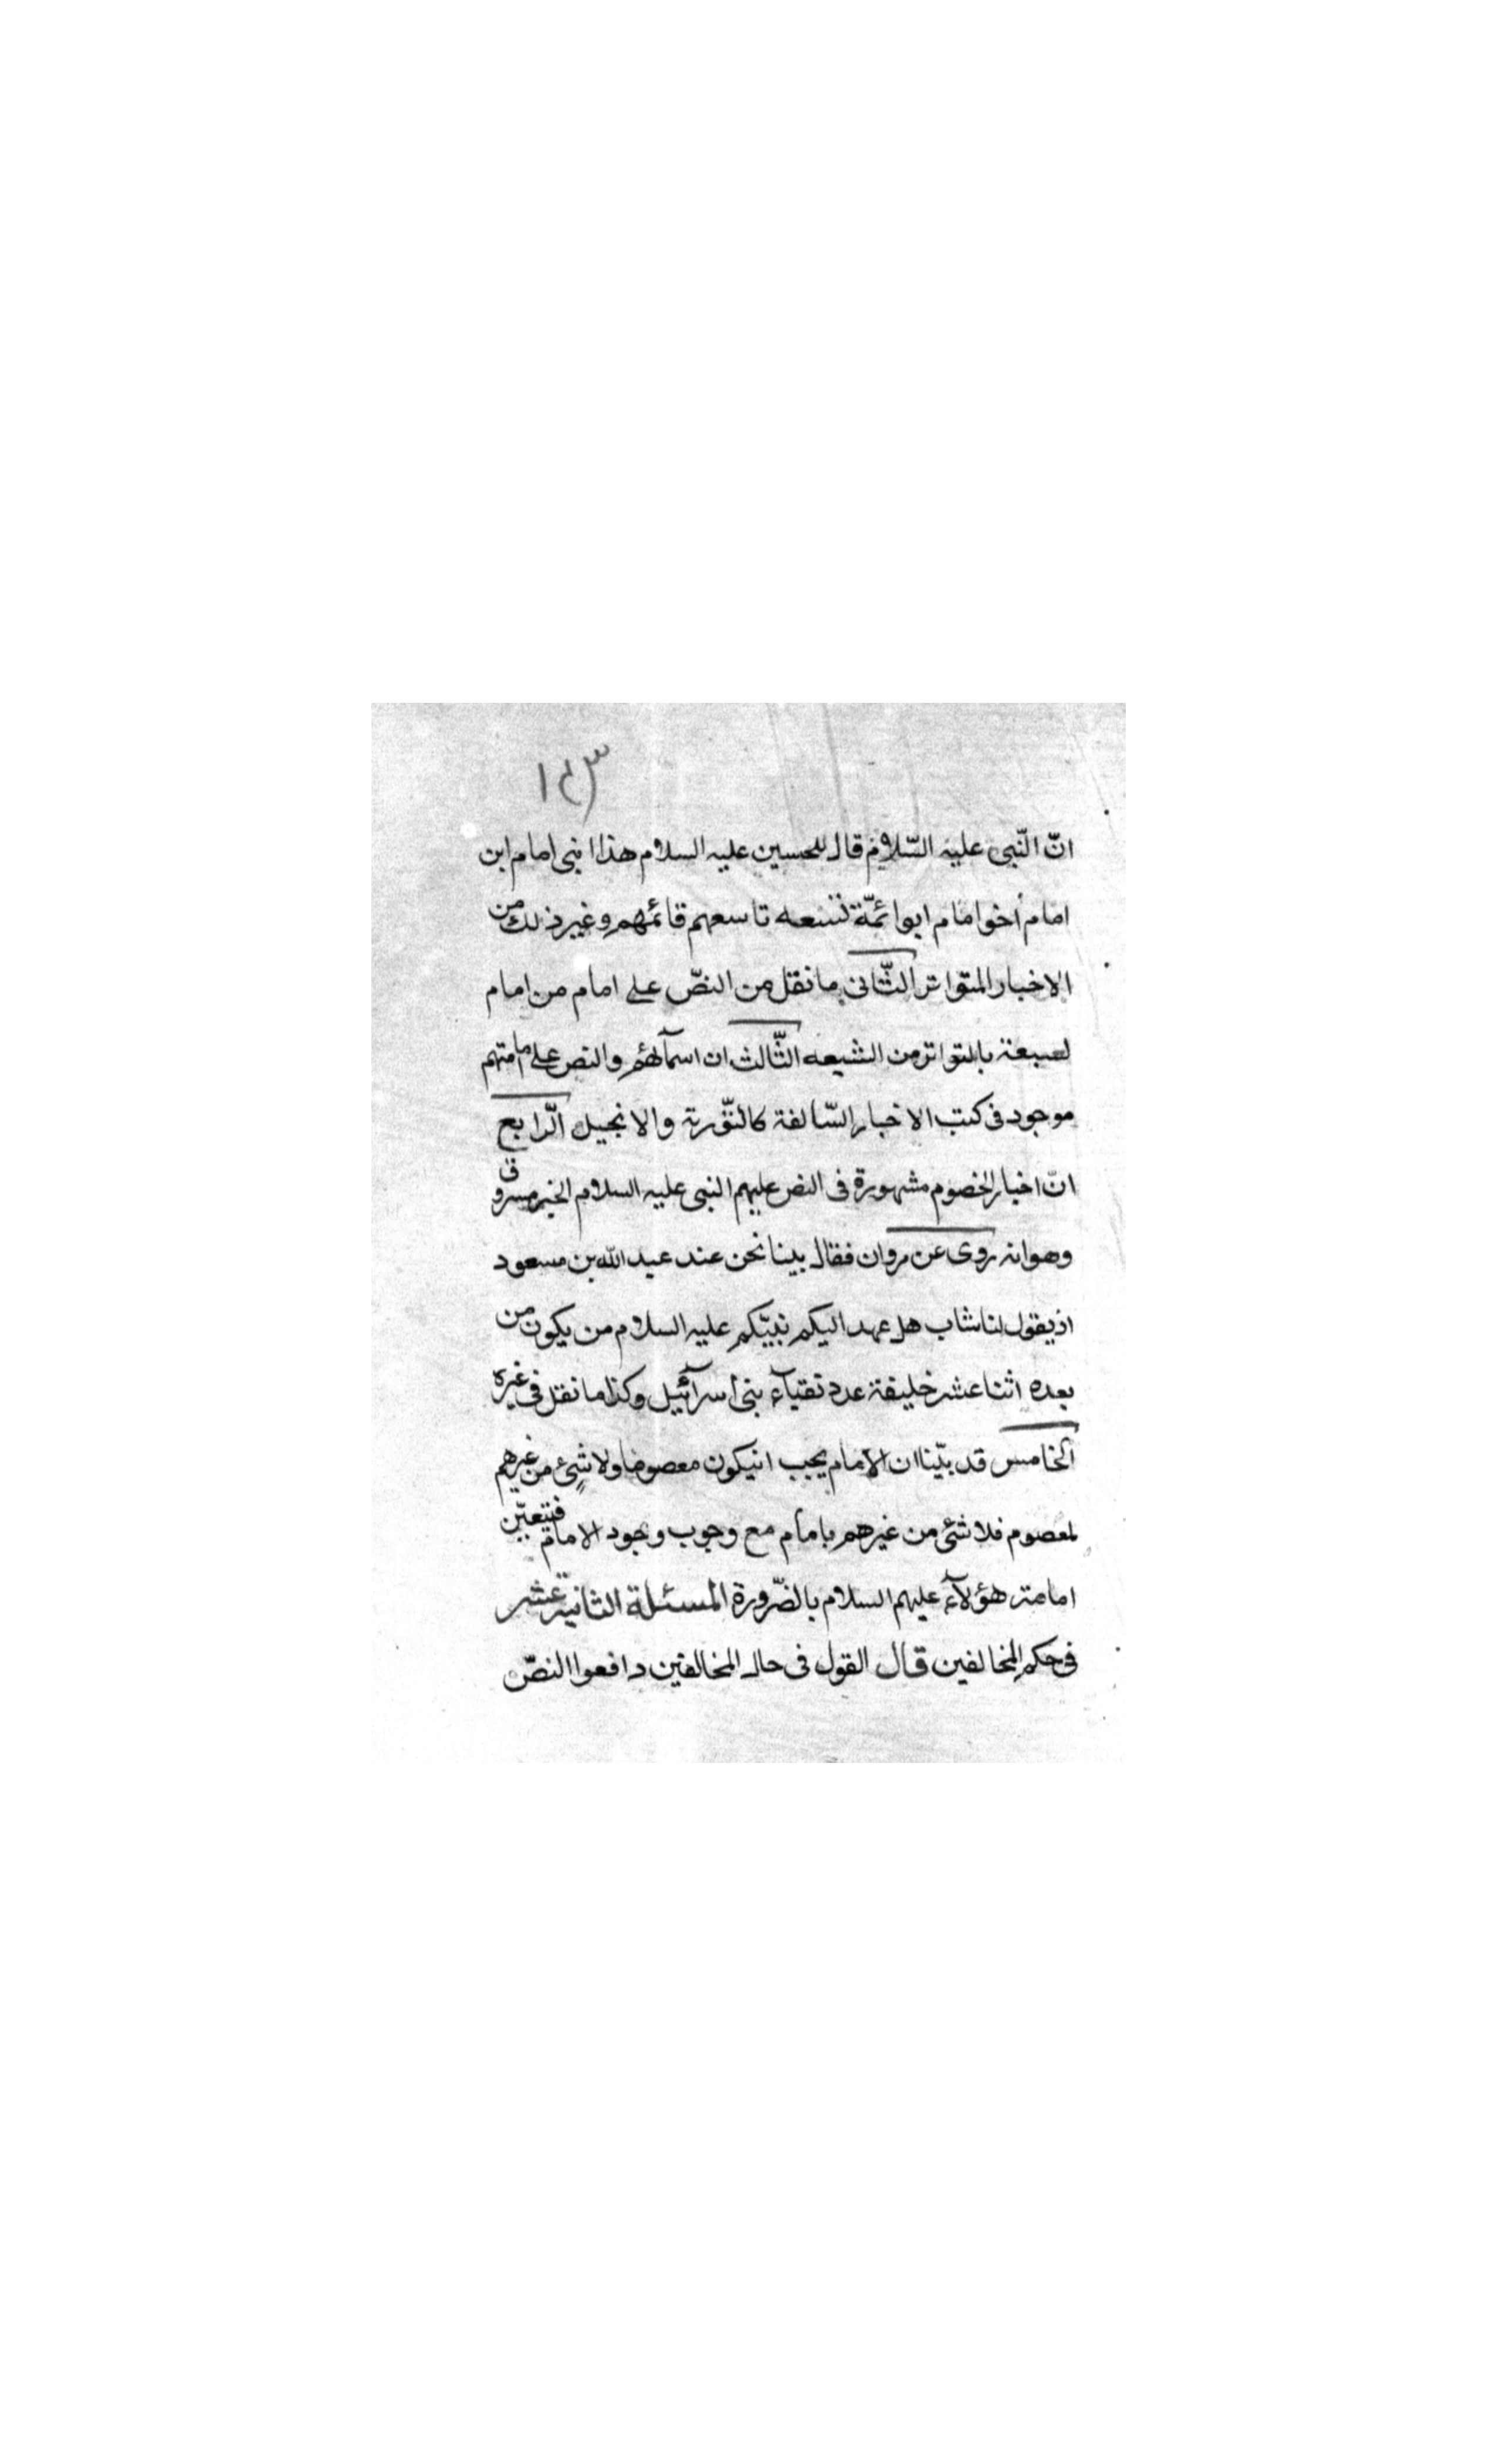 ١٤٣
انّ النّبى عليه السّلام قال للحسين عليه السلام هذا ابنى امام ابن
امام أخوا مام ابوا ئمّة تسعه تاسعهم قائمهم وغير ذلك من
الاخبار المتواتر الثّانى ما نقل من النصّ على امام من امام
لصبعة بالتواتر من الشيعه الثّالث ان اسمآئهم والنص على امامتهم
موجود فى كتب الاخبار السّالفة كالتّورية والانجيل الرّابع
انّ اخبار الخصوم مشهورة فى النص عليهم النبى عليه السلام الخبر مسروق
وهوانه روى عن مروان فقال بينا نحن عند عبد الله بن مسعود
اذ يقول لنا شاب هل عهد اليكم نبيّكم عليه السلام من يكون من
بعده اثنا عشر خليفة عدد نقبآء بنى اسرآئيل وكذا ما نقل فى غيره
الخامس قد بيّنا ان الامام يجب انيكون معصوما ولا شئ من غيرهم
لمعصوم فلا شئ من غيرهم بامام مع وجوب وجود الامام فتتعيّن
امامة هؤلآء عليهم السلام بالضّرورة المسئلة الثانية عشر
فى حكم المخالفين قال القول فى حال المخالفين دافعوا النصّ